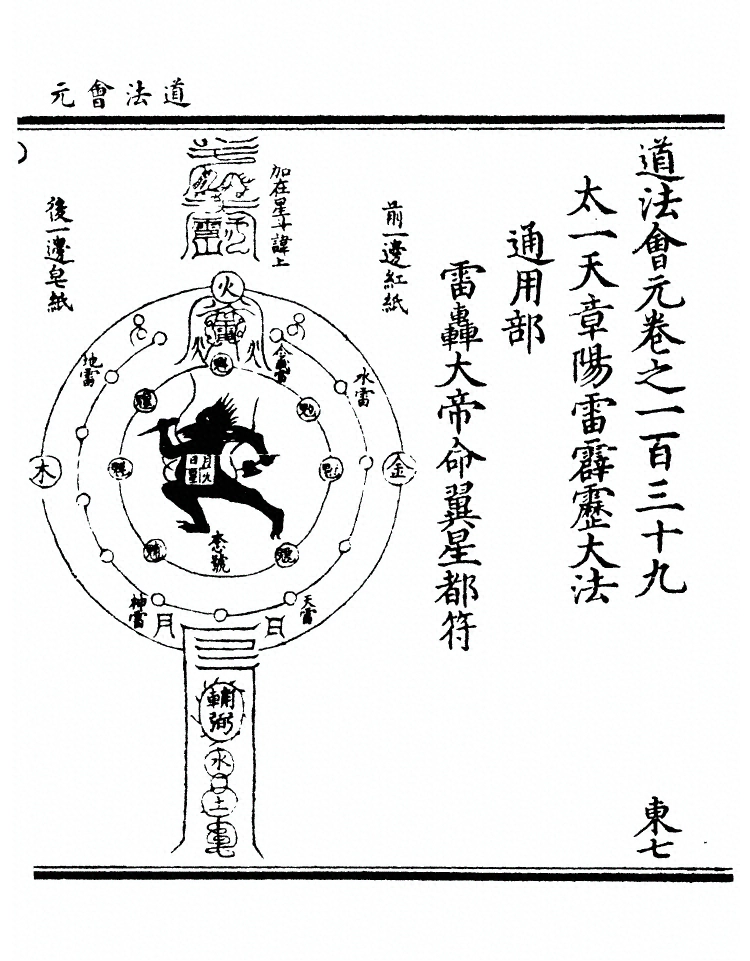 道法會元
道法會元卷之一百三十九
東七
太一天章陽雷霹靂大法
通用部
雷轟大帝命翼星都符
前一邊紅紙
加在星斗諱上
後一邊皂紙
火
水雷
地雷
金
木
日
月
天雷
神雷
月火
日星
號
輔弼
水
土